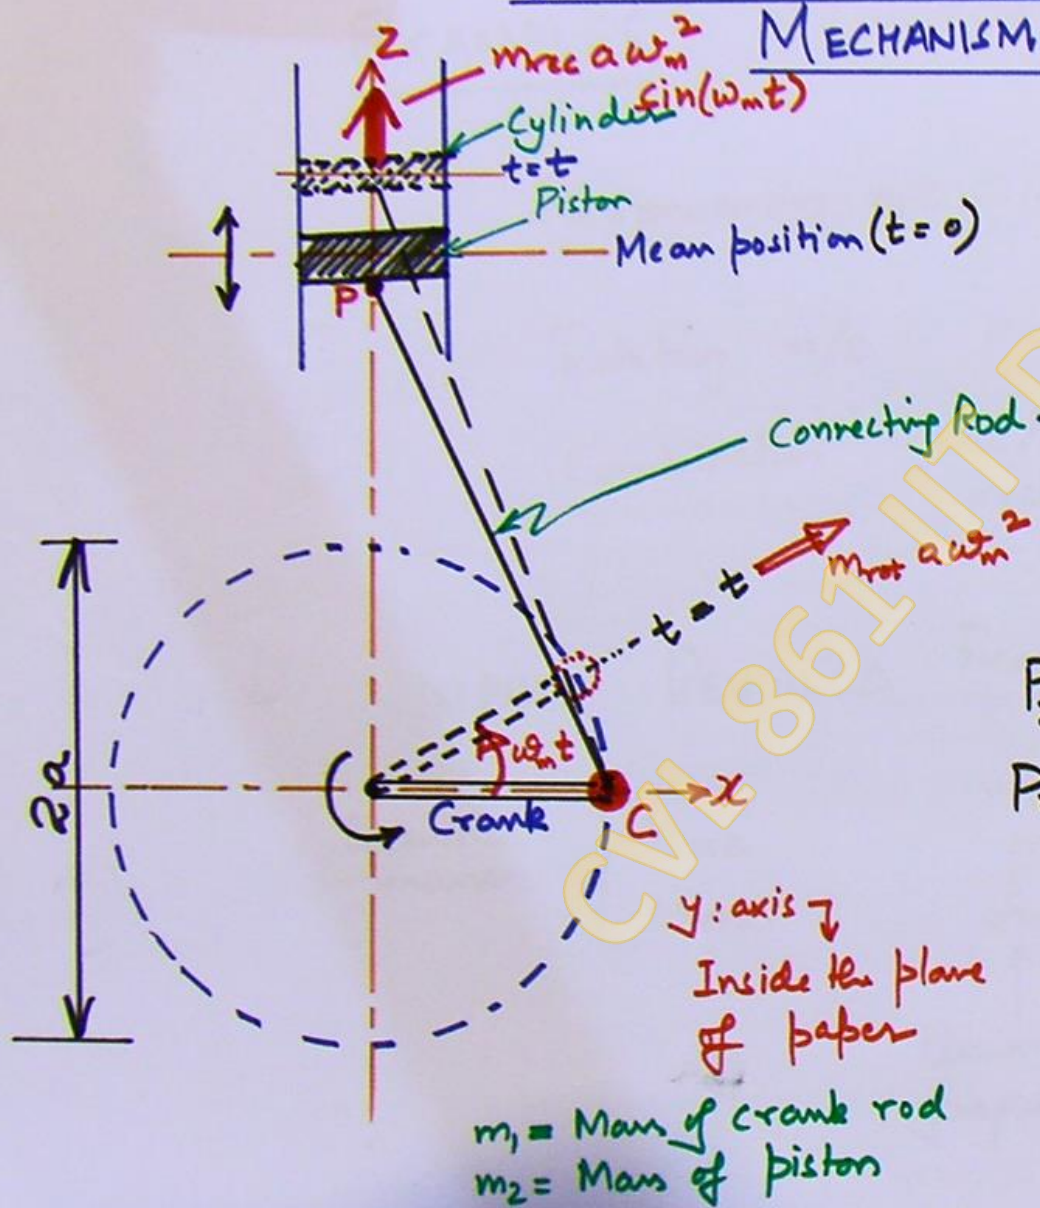 MECHANISM
Z
mrec a ωm²
sin(ωmt)
Cylinder
t = t
Piston
Mean position (t = 0)
P
Connecting Rod
mrot a ωm²
t = t
ωmt
2a
Crank
C
x
P
P
CVL 861 IIT D
y: axis
Inside the plane
of paper
m₁ = Mass of crank rod
m₂ = Mass of piston